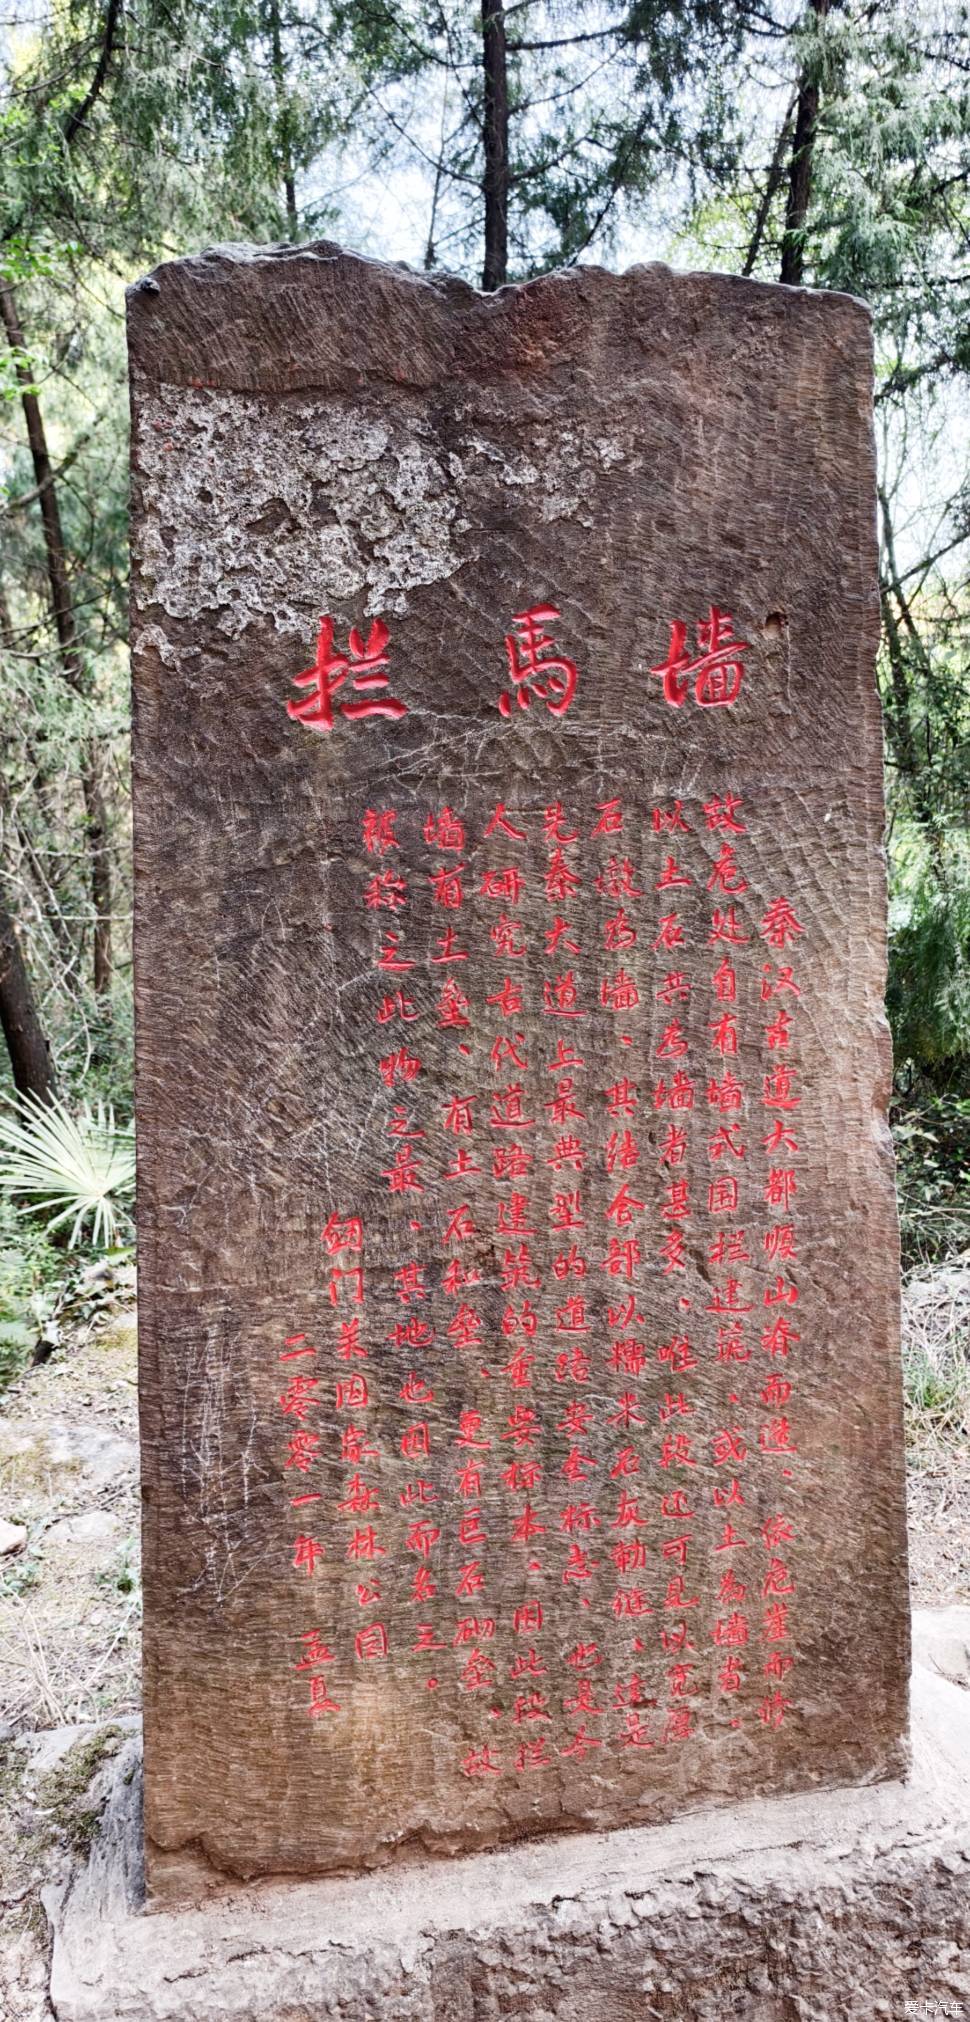 拦馬墙
秦汉古道大都顺山脊而造、依危崖而修
故危处自有墙式围拦建筑、或以土为墙者、
以土石共为墙者甚多、唯此段还可见以宽厚
石墩为墙、其结合部以糯米石灰勒缝、这是
先秦大道上最典型的道路安全标志、也是今
人研究古代道路建筑的重要标本、因此段拦
墙有土垒、有土石和垒、更有巨石砌垒、故
被称之此物之最、其地也因此而名之。
剑门关国家森林公园
二零零一年 孟夏
爱卡汽车